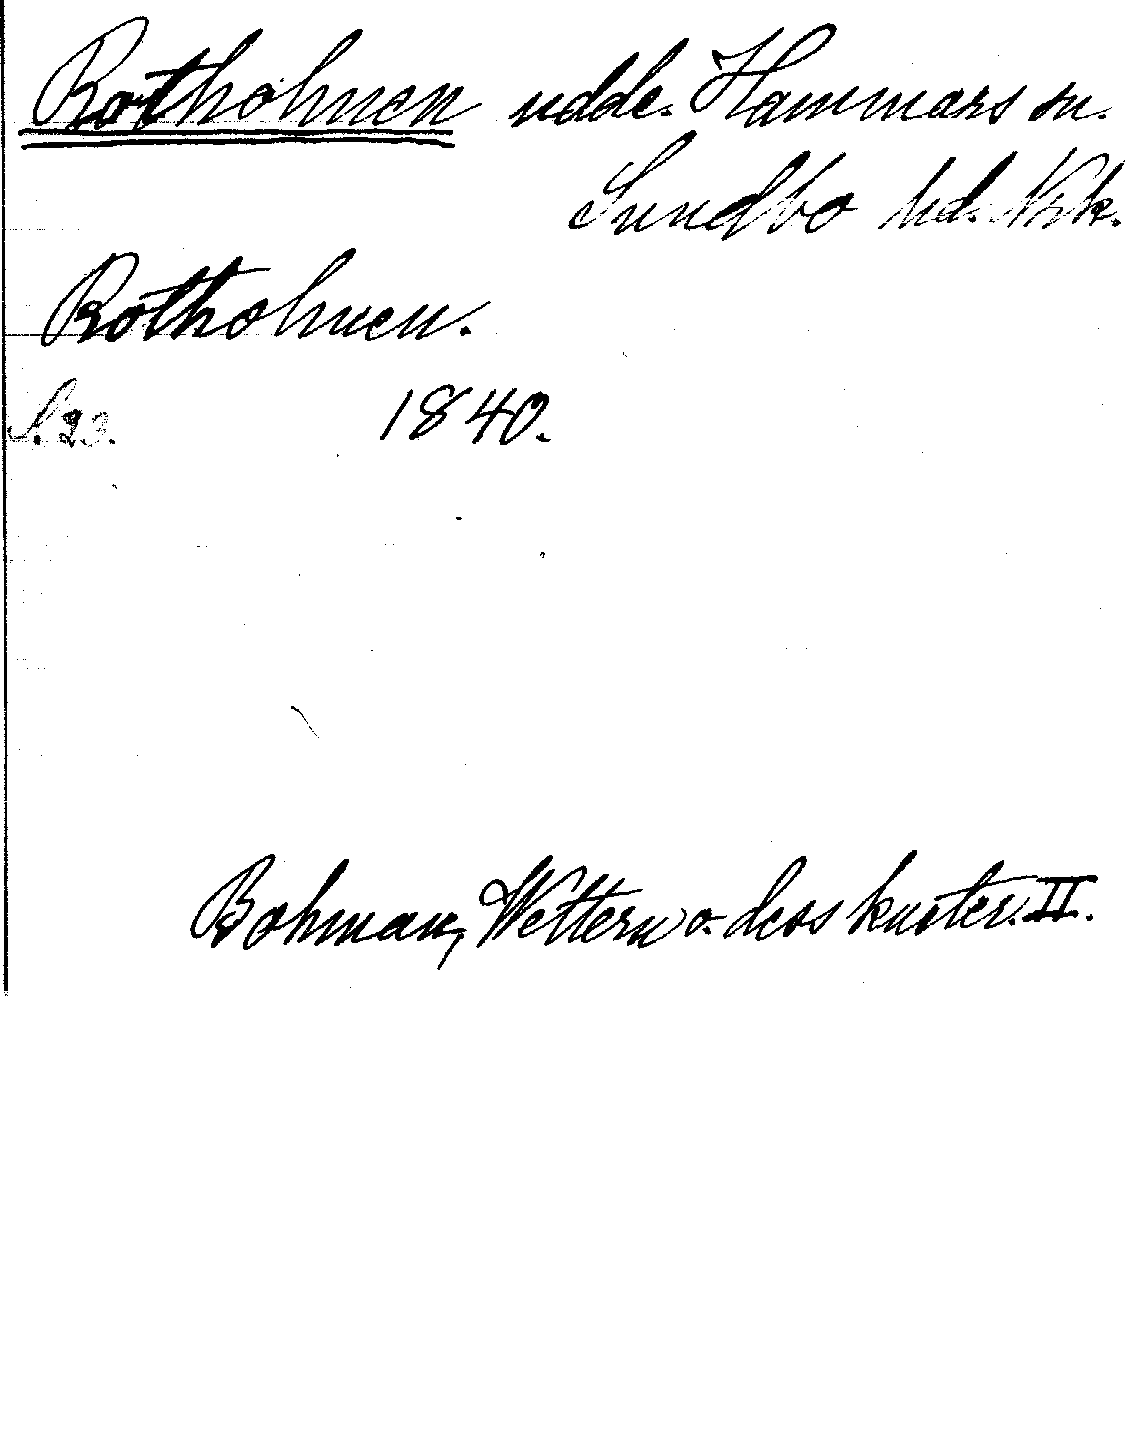 Rotholmen udde. Hammars sn.
Sundbo hd. Nrk.
Rotholmen.
S. 23. 1840.
Bohman, Wettern o. dess kuster. II.